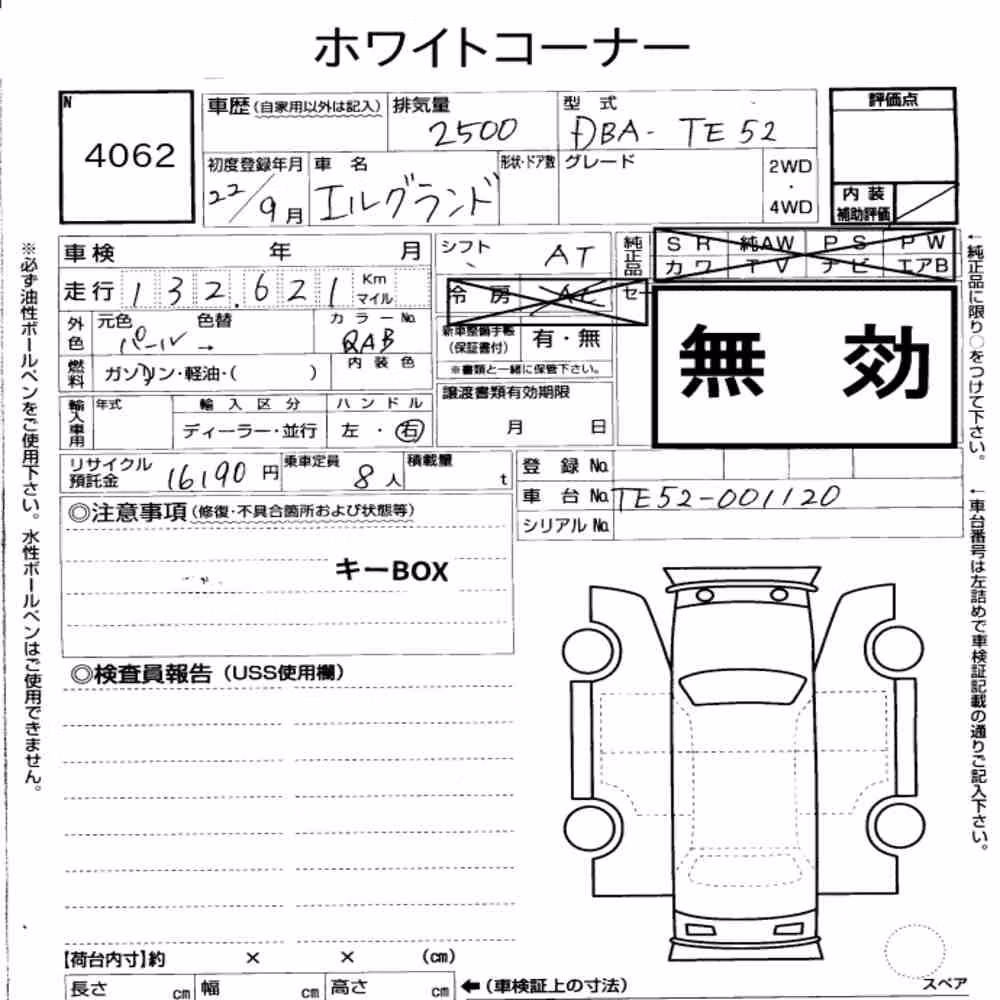 ホワイトコーナー
N
4062
車歴(自家用以外は記入)
排気量
2500
型 式
DBA- TE52
評価点
初度登録年月
22/9月
車 名
エルグランド
形状・ドア数
グレード
2WD
・
4WD
内 装
補助評価
車検 年 月
シフト
AT
純正品
SR 純AW PS PW
カワ TV ナビ エアB
走行 132.621 Km
マイル
冷 房
セ
外色
元色 色替
パール →
カラーNo.
QAB
新車整備手帳
(保証書付)
有・無
※書類と一緒に保管下さい。
無 効
燃料
ガソリン・軽油・( )
内 装 色
譲渡書類有効期限
月 日
輸入車用
年式
輸 入 区 分
ディーラー・並行
ハ ン ド ル
左 ・ 右
リサイクル
預託金
16190 円
乗車定員
8 人
積載量
t
登 録 No.
車 台 No. TE52-001120
シリアル No.
◎注意事項(修復・不具合箇所および状態等)
キーBOX
◎検査員報告(USS使用欄)
【荷台内寸】約 × × (cm)
長さ cm 幅 cm 高さ cm
←(車検証上の寸法)
スペア
※必ず油性ボールペンをご使用下さい。水性ボールペンはご使用できません。
←純正品に限り○をつけて下さい。
←車台番号は左詰めで車検証記載の通りご記入下さい。